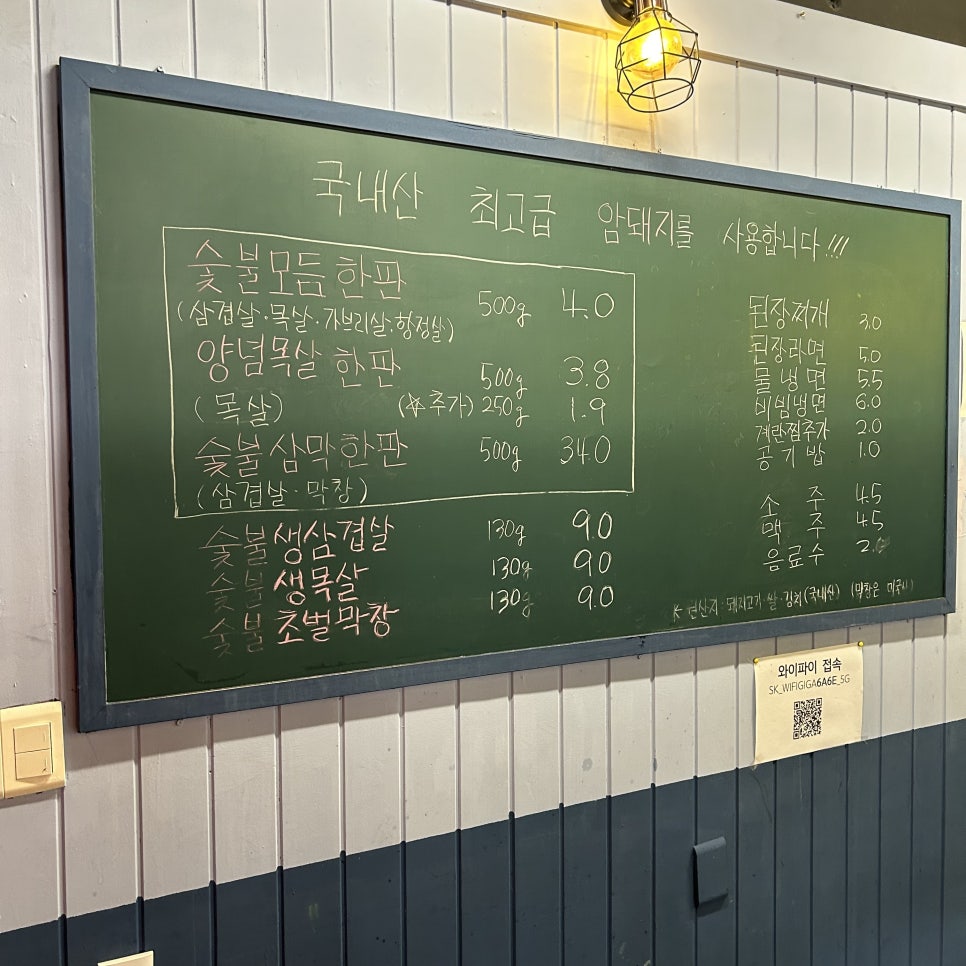 국내산 최고급 암돼지를 사용합니다!!!
숯불모듬한판 500g 4.0
(삼겹살·목살·가브리살·항정살)
양념목살 한판 500g 3.8
(목살) (☆추가) 250g 1.9
숯불삼막한판 500g 34.0
(삼겹살·막창)
숯불생삼겹살 130g 9.0
숯불생목살 130g 9.0
숯불초벌막창 130g 9.0
된장찌개 3.0
된장라면 5.0
물냉면 5.5
비빔냉면 6.0
계란찜추가 2.0
공기밥 1.0
소주 4.5
맥주 4.5
음료수 2.0
원산지·돼지고기·쌀·김치(국내산) (막창은 미국산)
와이파이 접속
SK_WIFIGIGA6A6E_5G